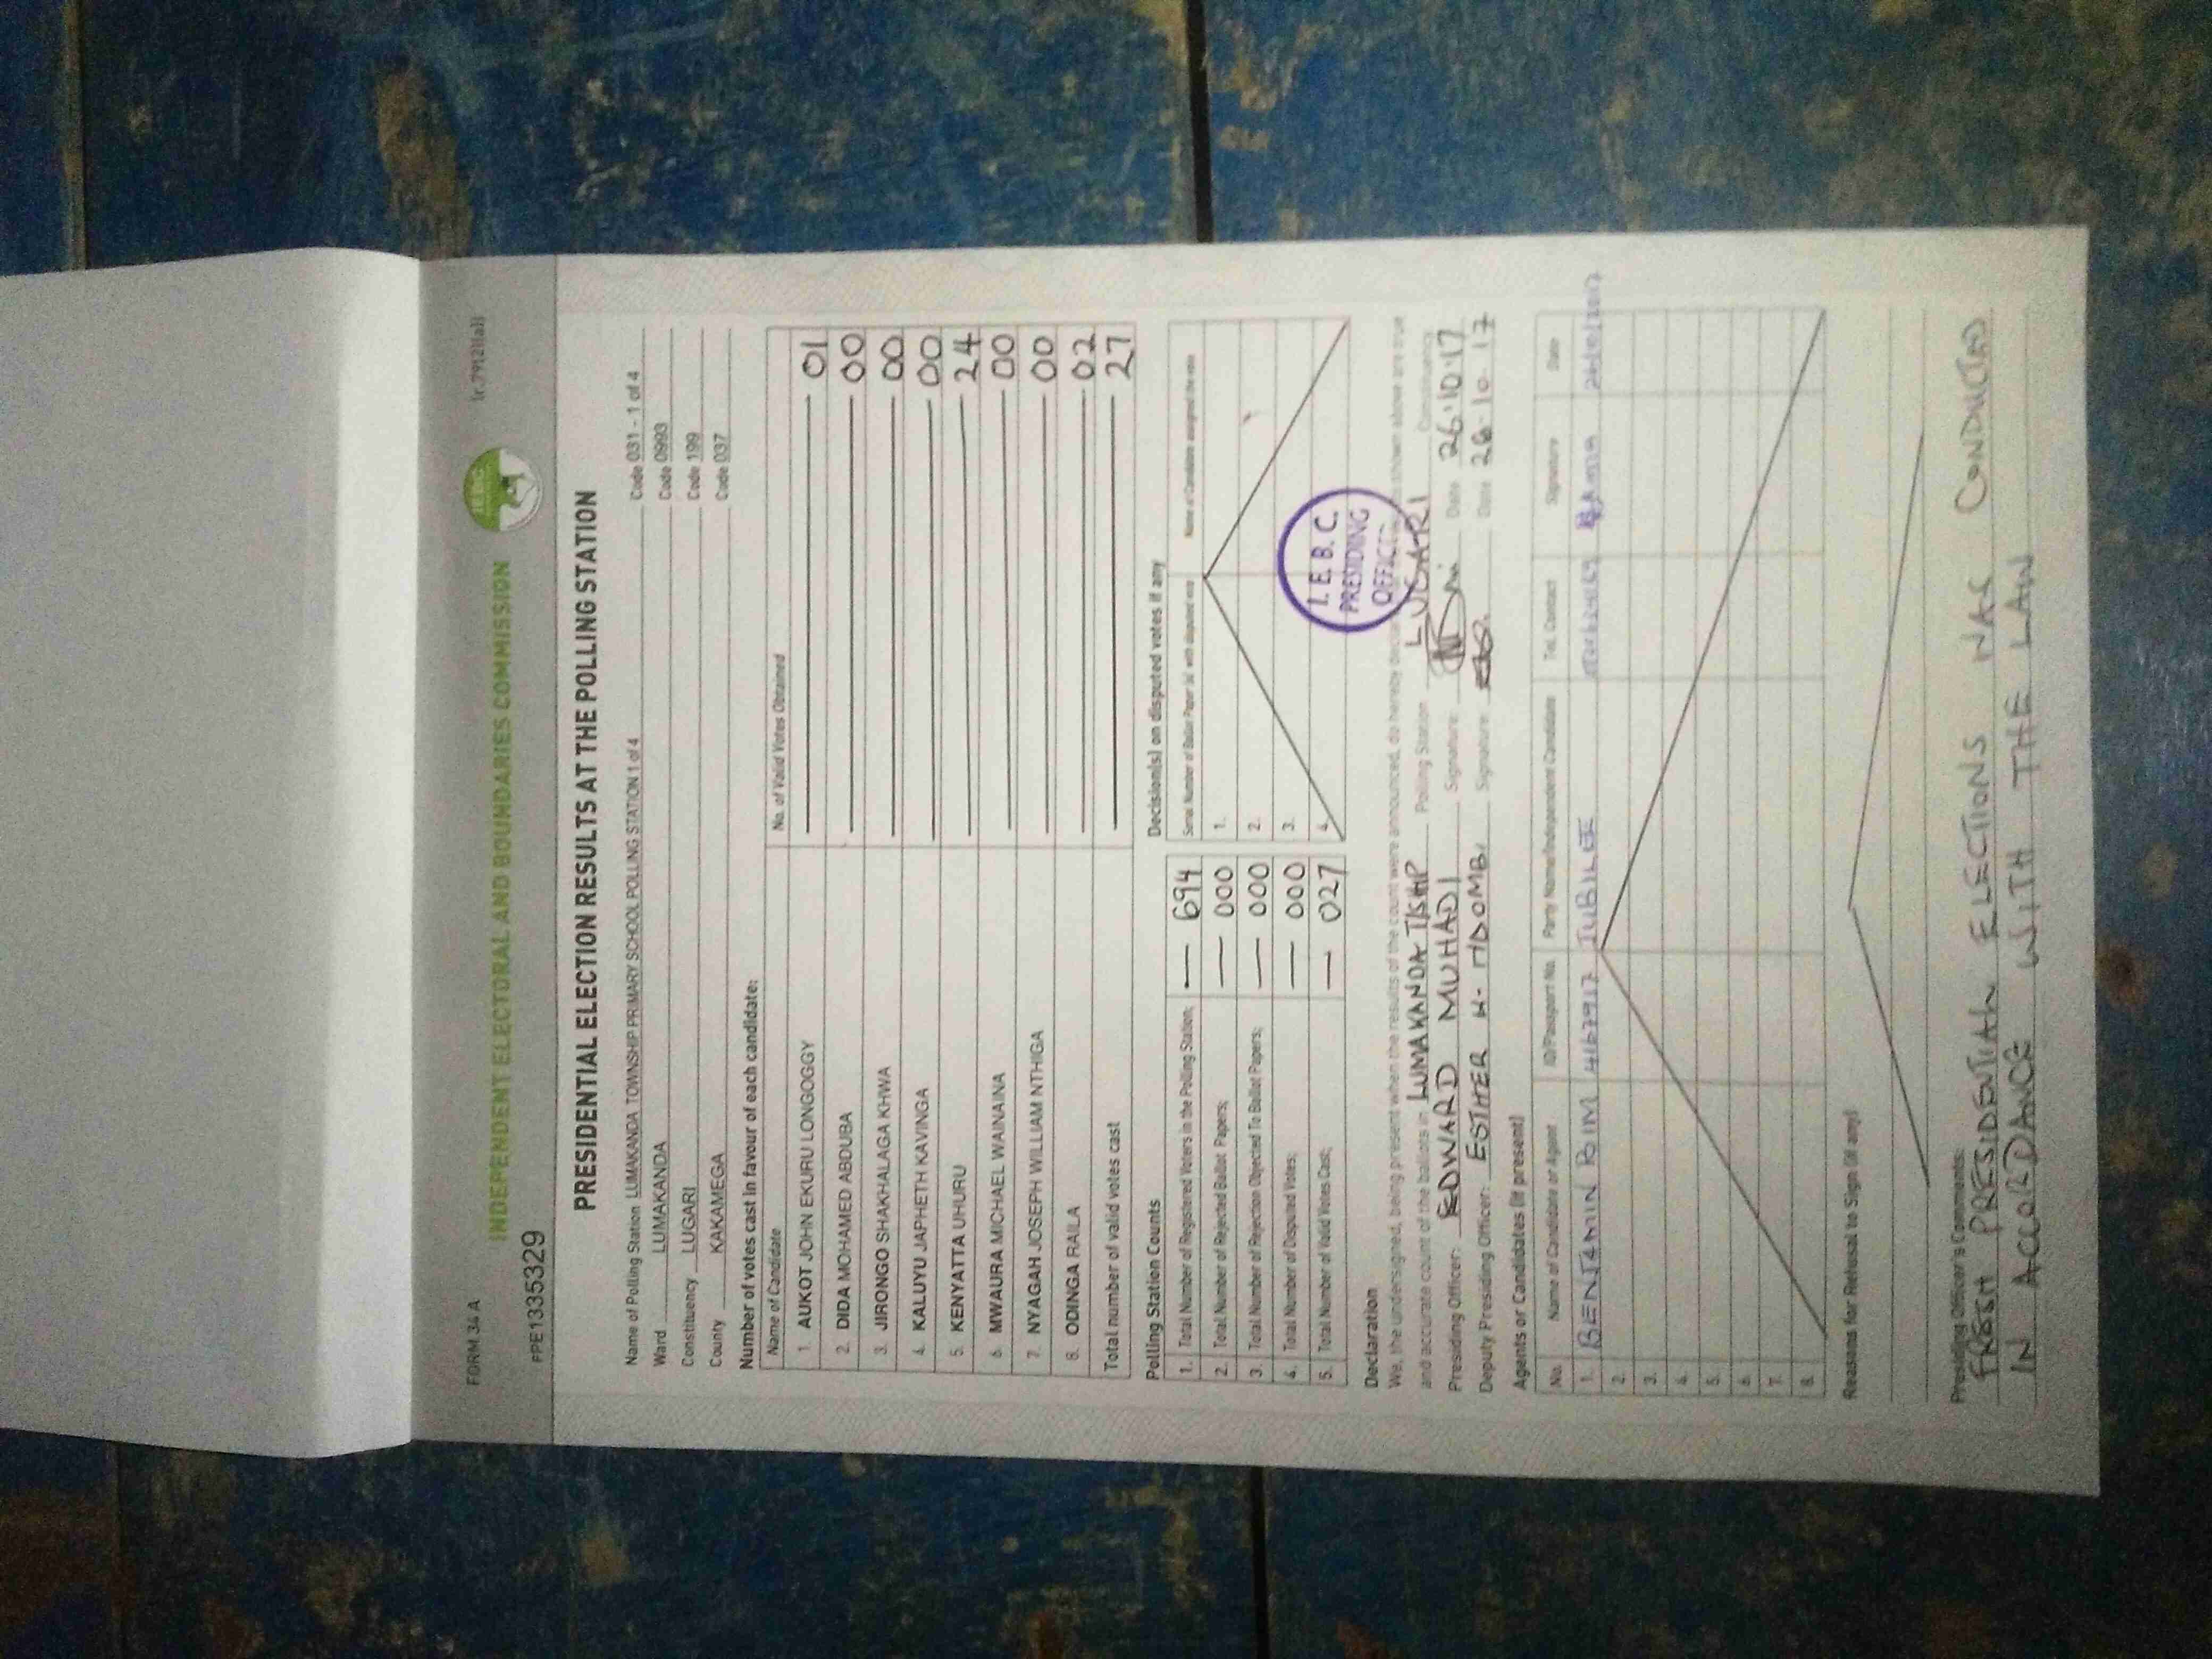 FORM 34 A
INDEPENDENT ELECTORAL AND BOUNDARIES COMMISSION
FPE1335329
PRESIDENTIAL ELECTION RESULTS AT THE POLLING STATION
Name of Polling Station LUMAKANDA TOWNSHIP PRIMARY SCHOOL POLLING STATION 1 of 4 Code 031 - 1 of 4
Ward LUMAKANDA Code 0993
Constituency LUGARI Code 199
County KAKAMEGA Code 037
Number of votes cast in favour of each candidate:
Name of Candidate No. of Valid Votes Obtained
1. AUKOT JOHN EKURU LONGOGGY 01
2. DIDA MOHAMED ABDUBA 00
3. JIRONGO SHAKHALAGA KHWA 00
4. KALUYU JAPHETH KAVINGA 00
5. KENYATTA UHURU 24
6. MWAURA MICHAEL WAINAINA 00
7. NYAGAH JOSEPH WILLIAM NTHIGA 00
8. ODINGA RAILA 02
Total number of valid votes cast 27
Polling Station Counts Decision(s) on disputed votes if any
Serial Number of Ballot Paper (s) with disputed vote Name of Candidate assigned the vote
1. Total Number of Registered Voters in the Polling Station; 694 1.
2. Total Number of Rejected Ballot Papers; 000 2.
3. Total Number of Rejection Objected To Ballot Papers; 000 3.
4. Total Number of Disputed Votes; 000 4.
5. Total Number of Valid Votes Cast; 027
I.E.B.C.
PRESIDING
OFFICER
Declaration
We, the undersigned, being present when the results of the count were announced, do hereby shown above are true
and accurate count of the ballots in LUMAKANDA T/SHP Polling Station LUGARI Constituency
Presiding Officer: EDWARD MUHADI Signature: Date 26.10.17
Deputy Presiding Officer: ESTHER Signature: Date 26-10-17
Agents or Candidates (if present)
No. Name of Candidate or Agent ID/Passport No. Party Name/Independent Candidate Tel. Contact Signature Date
1. BENJAMIN JUBILEE
2.
3.
4.
5.
6.
7.
8.
Reasons for Refusal to Sign (if any)
Presiding Officer's Comments:
FRESH PRESIDENTIAL ELECTIONS WAS CONDUCTED
IN ACCORDANCE WITH THE LAW